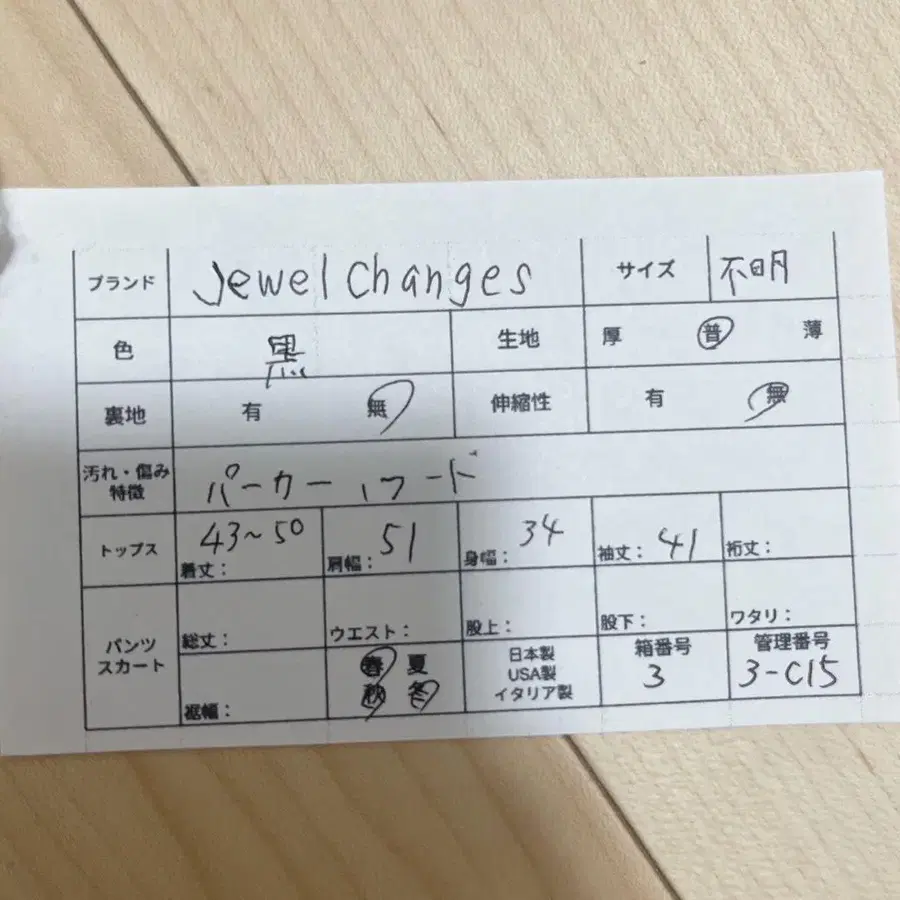 ブランド Jewel Changes サイズ 不明
色 黒 生地 厚 普 薄
裏地 有 無 伸縮性 有 無
汚れ・傷み
特徴
パーカー フード
トップス
43~50
着丈:
51
肩幅:
34
身幅:
41
袖丈:
裄丈:
パンツ
スカート
総丈:
ウエスト:
股上:
股下:
ワタリ:
裾幅:
春 夏
秋 冬
日本製
USA製
イタリア製
箱番号
3
管理番号
3-C15